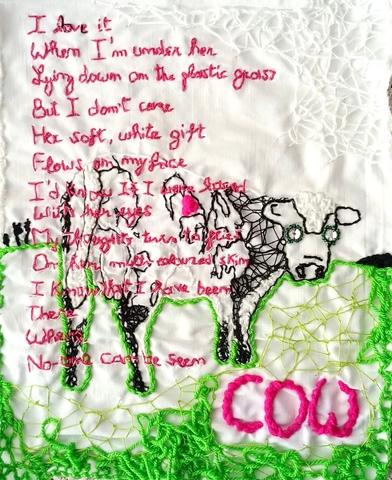 I love it
When I'm under her
Lying down on the plastic grass
But I don't care
Her soft, white gift
Flows on my face
I'd enjoy If I were
With her eyes
My thoughts turn to
On her multi coloured skin
I know that I have been
There
Where
No one can be seen
COW